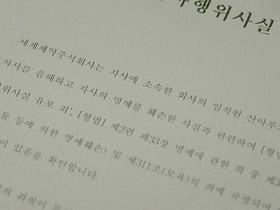 행위사실
세계제약주식회사는 지사에 소속한 회사의 임직원 산마루
지사를 음해하고 지사의 명예를 훼손한 사실과 관련하여 [형법
위사실 유포 죄; [형법] 제2편 제33장 명예에 관한 죄 중 제3
물 등에 의한 명예훼손) 및 제311조(모욕)의 죄에 규정되어
있음을 확인합니다.
의 죄질이